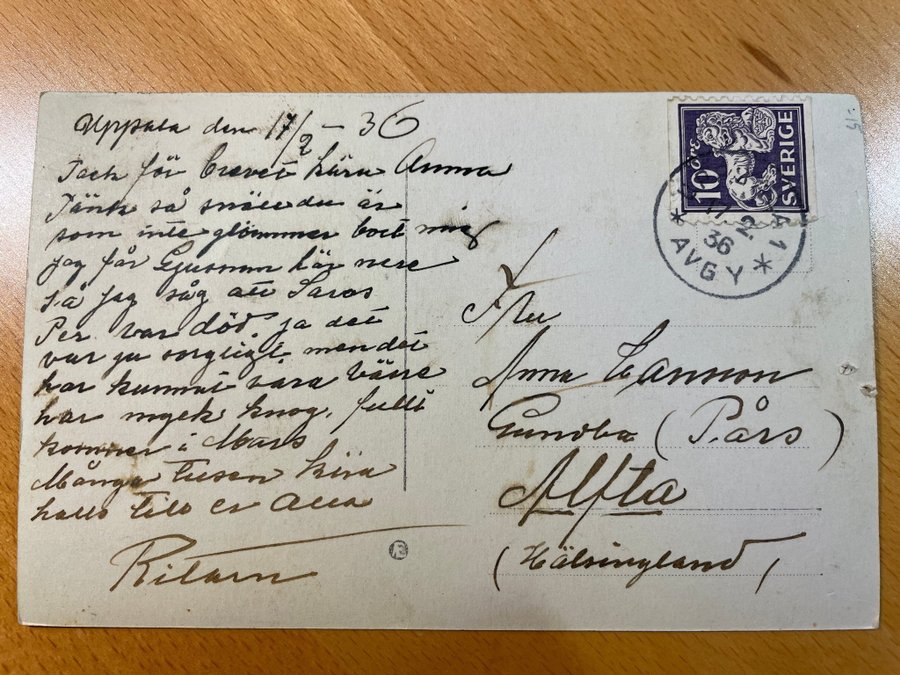 Uppsala den 17/2 – 36
Tack för brevet kära Anna
Tänk så snäll du är
som inte glömmer bort mig
jag får Ljusnan här nere
så jag såg att Lares
Per. var död, ja det
var ju sorgligt men det
har kunnat vara värre
har myck knog, fullt
kommer i Mars
Många tusen kära
hälls till er Alla
10 ÖRE
SVERIGE
36
AVGY
Fru
Anna
Gundbo (Pårs)
Alfta
(Hälsingland)